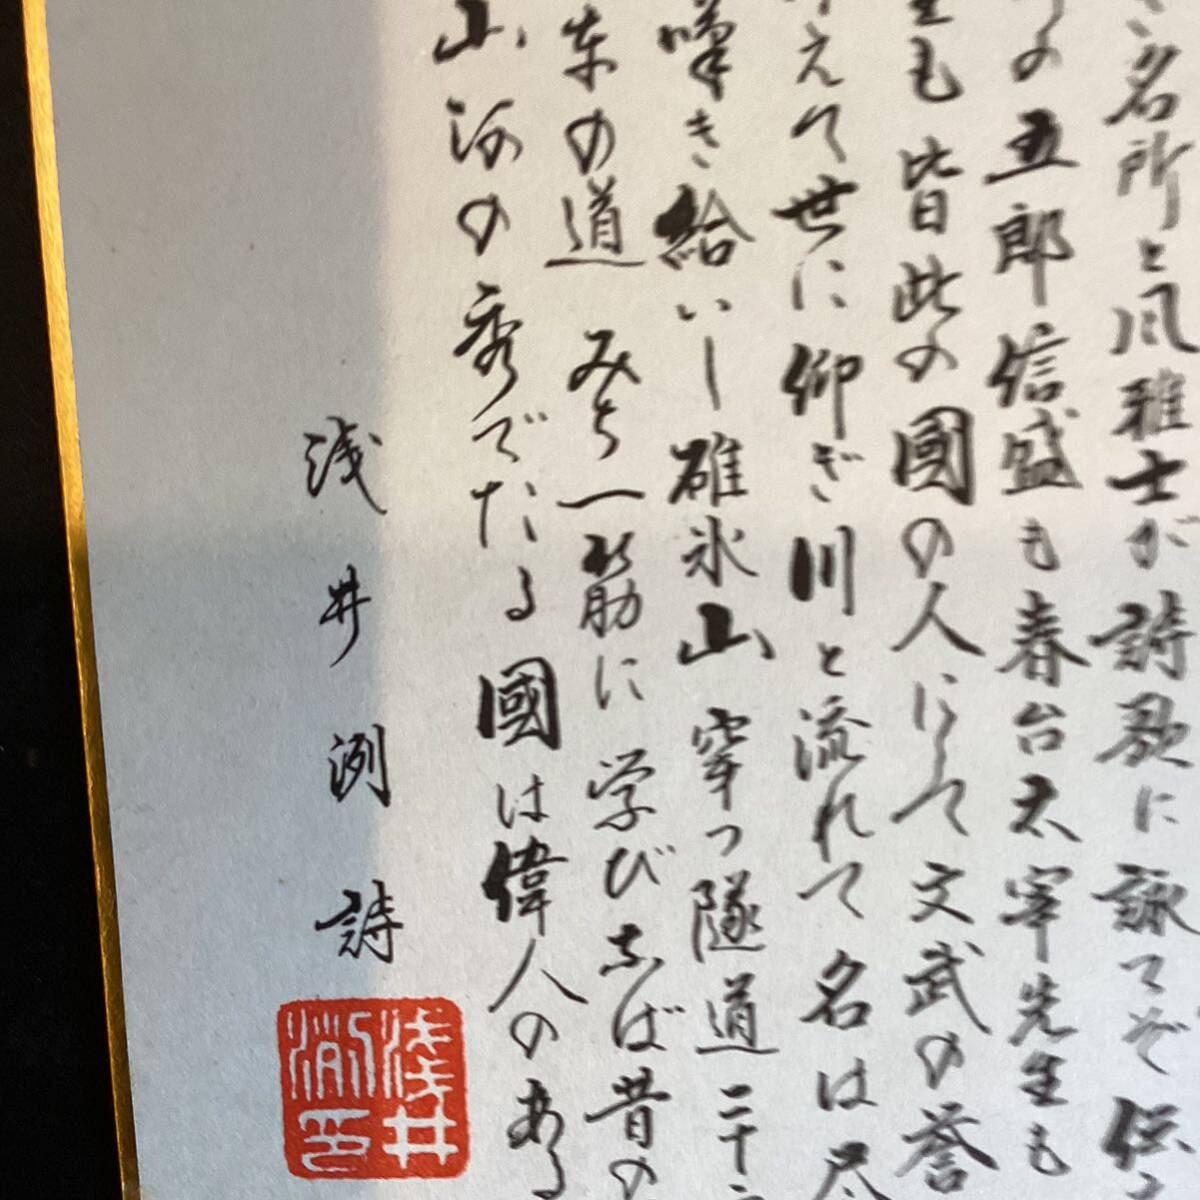 き名所と風雅士が詩歌に詠てぞ伝
の五郎信盛も春台太宰先生も
生も皆此の國の人にして文武の誉
えて世に仰ぎ川と流れて名は尽
嘆き給いし碓氷山穿つ隧道二十
車の道 みち一筋に学びなば昔の
山河の秀でたる國は偉人のある
浅井洌 詩
浅井洌印